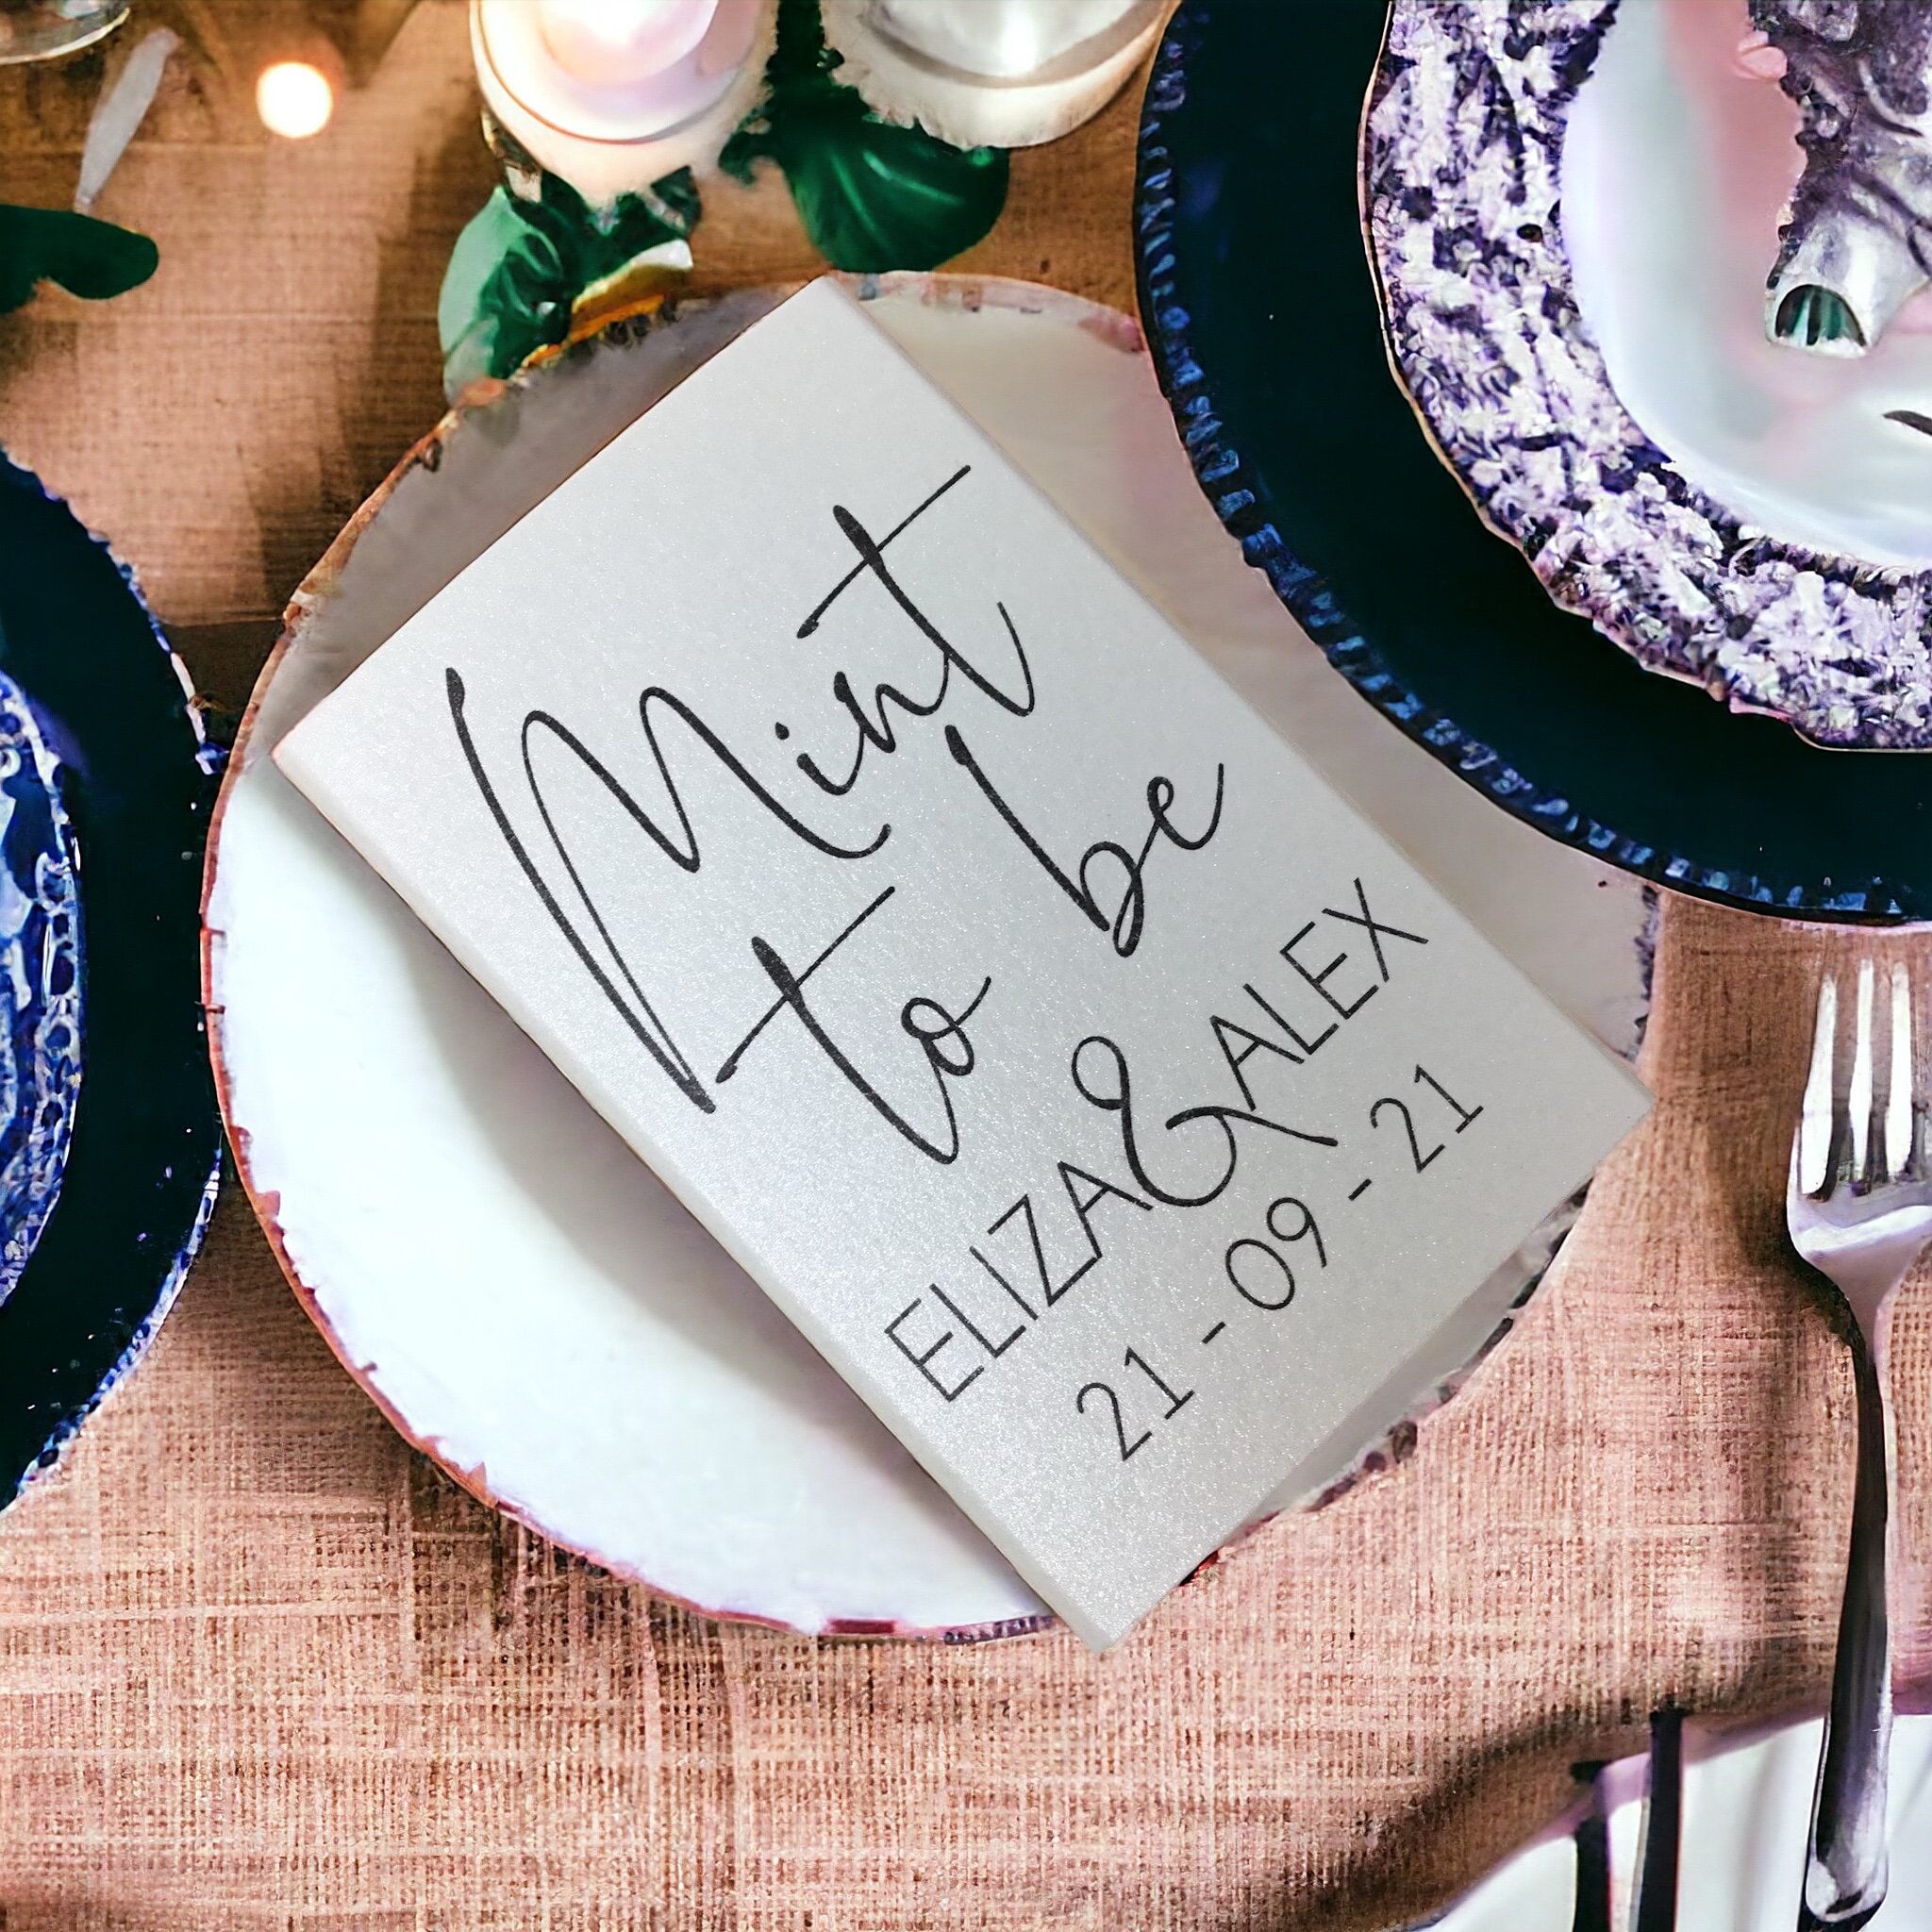 Mint
to be
ELIZA & ALEX
21 - 09 - 21